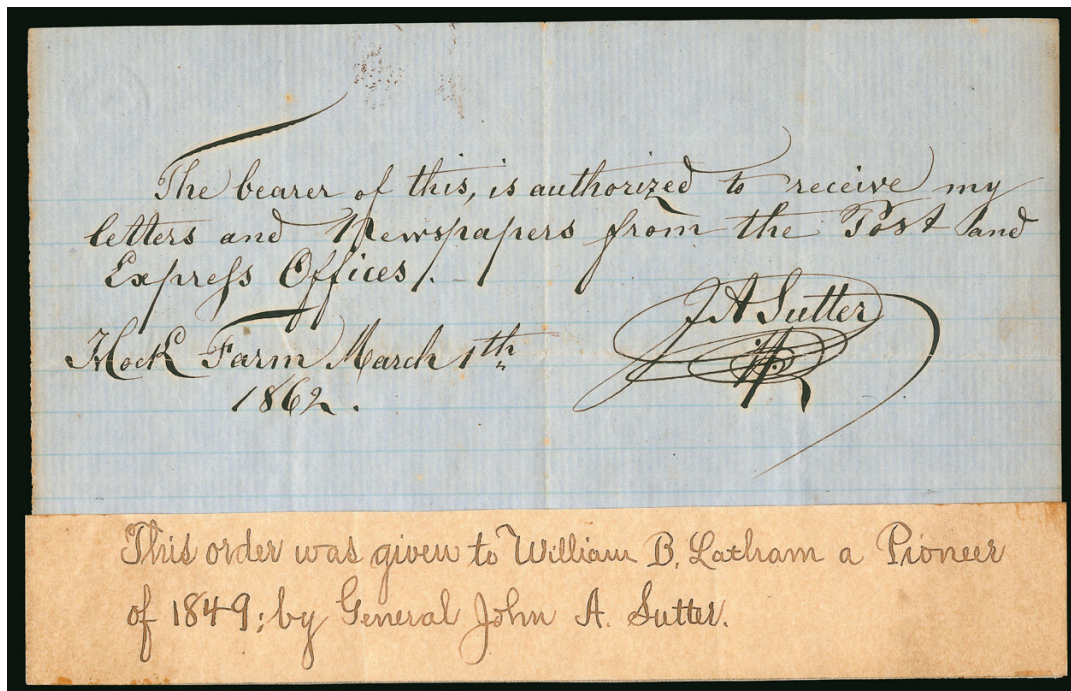 The bearer of this, is authorized to receive my
letters and Newspapers from the Post and
Express Offices.
J A Sutter
Hock Farm March 1th
1862.
This order was given to William B. Latham a Pioneer
of 1849; by General John A. Sutter.